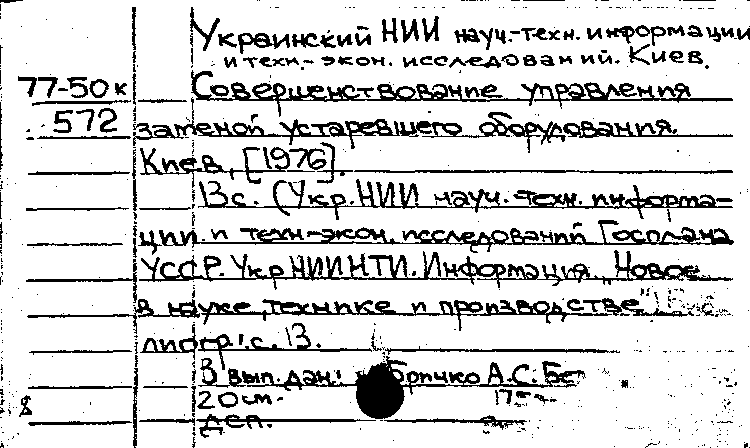 Украинский НИИ науч.-техн. информации
и техн.-экон. исследований. Киев.
77-50к Совершенствование управления
572 заменой устаревшего оборудования.
Киев, [1976].
13 с. (Укр. НИИ науч.-техн. информа-
ции и техн.-экон. исследований Госплана
УССР. УкрНИИНТИ. Информация „Новое
в науке, технике и производстве"
лиогр: с. 13.
В вып. дан: Бричко А.С.
20 см.
деп.
8